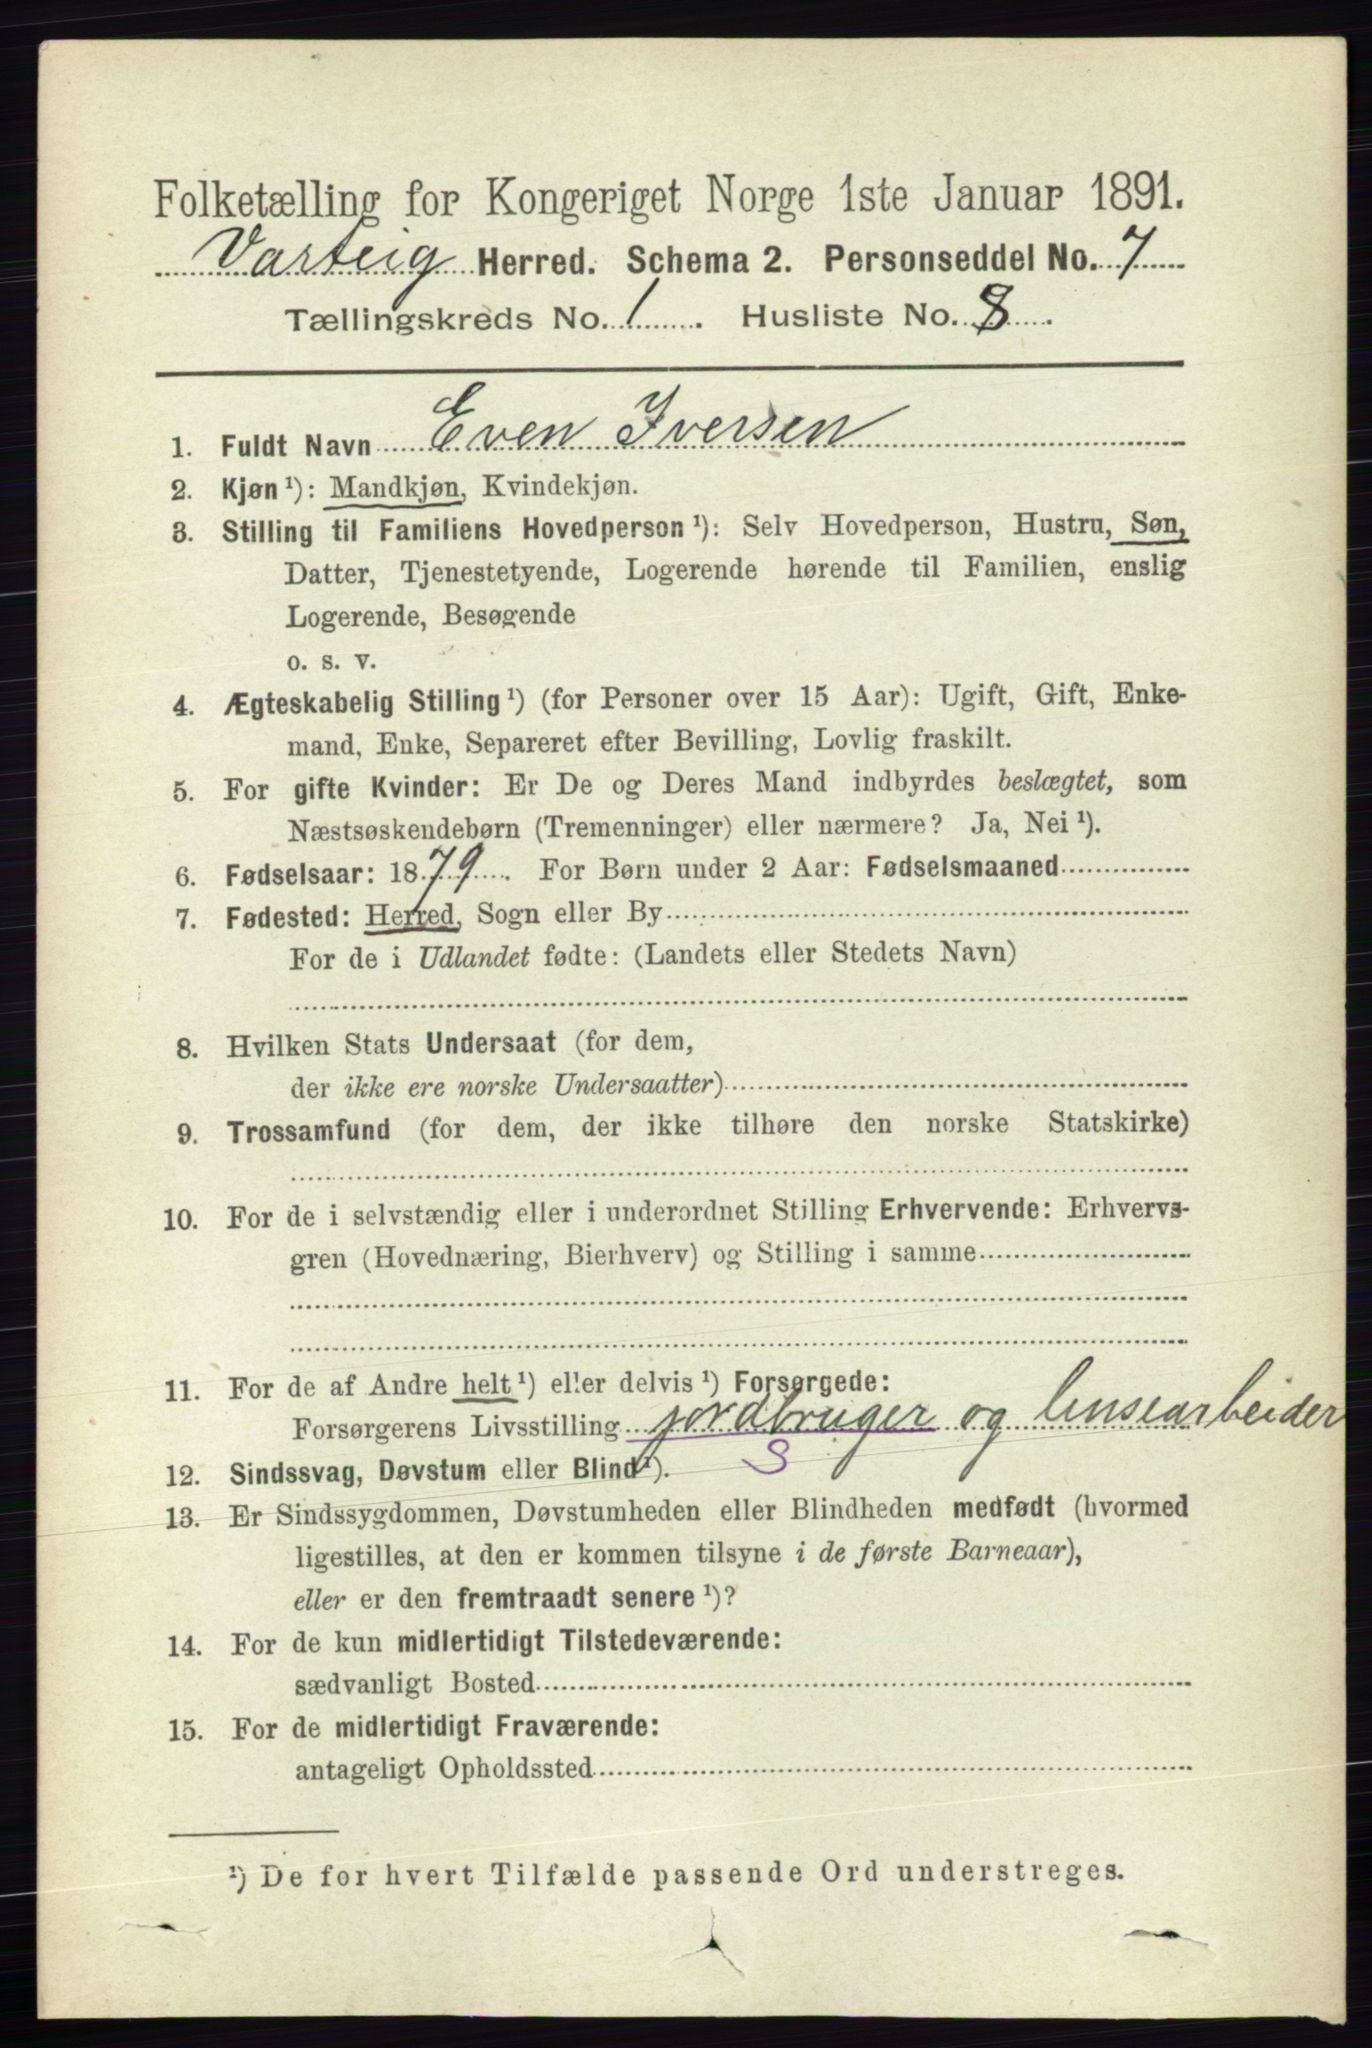 Folketælling for Kongeriget Norge 1ste Januar 1891.
Varteig Herred. Schema 2. Personseddel No. 7
Tællingskreds No. 1. Husliste No. 8.
1. Fuldt Navn Even Iversen
2. Kjøn ¹): Mandkjøn, Kvindekjøn.
3. Stilling til Familiens Hovedperson ¹): Selv Hovedperson, Hustru, Søn,
Datter, Tjenestetyende, Logerende hørende til Familien, enslig
Logerende, Besøgende
o. s. v.
4. Ægteskabelig Stilling ¹) (for Personer over 15 Aar): Ugift, Gift, Enke-
mand, Enke, Separeret efter Bevilling, Lovlig fraskilt.
5. For gifte Kvinder: Er De og Deres Mand indbyrdes beslægtet, som
Næstsøskendebørn (Tremenninger) eller nærmere? Ja, Nei ¹).
6. Fødselsaar: 1879. For Børn under 2 Aar: Fødselsmaaned
7. Fødested: Herred, Sogn eller By
For de i Udlandet fødte: (Landets eller Stedets Navn)
8. Hvilken Stats Undersaat (for dem,
der ikke ere norske Undersaatter)
9. Trossamfund (for dem, der ikke tilhøre den norske Statskirke)
10. For de i selvstændig eller i underordnet Stilling Erhvervende: Erhvervs-
gren (Hovednæring, Bierhverv) og Stilling i samme
11. For de af Andre helt ¹) eller delvis ¹) Forsørgede:
Forsørgerens Livsstilling jordbruger og lensearbeider
12. Sindssvag, Døvstum eller Blind ¹). S
13. Er Sindssygdommen, Døvstumheden eller Blindheden medfødt (hvormed
ligestilles, at den er kommen tilsyne i de første Barneaar),
eller er den fremtraadt senere ¹)?
14. For de kun midlertidigt Tilstedeværende:
sædvanligt Bosted
15. For de midlertidigt Fraværende:
antageligt Opholdssted
¹) De for hvert Tilfælde passende Ord understreges.